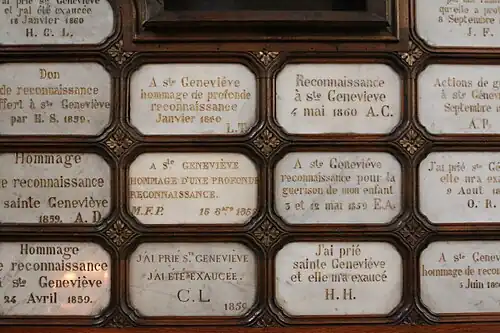 J'ai prié Ste Geneviève
et j'ai été exaucée
18 Janvier 1860
H. C. L.
qu'elle a
8 Septembre
J. F.
Don
de reconnaissance
offert à ste Geneviève
par H. S. 1859.
A ste Geneviève
hommage de profonde
reconnaissance
Janvier 1860
L.T.
Reconnaissance
à ste Geneviève
4 mai 1860 A.C.
Actions de
à ste
Septembre
A. P.
Hommage
de reconnaissance
à sainte Geneviève
1859. A.D.
A STE GENEVIÈVE
HOMMAGE D'UNE PROFONDE
RECONNAISSANCE.
M.F.P. 16 8bre 1859
A ste Geneviève
reconnaissance pour la
guérison de mon enfant
3 et 12 mai 1859 E.A.
J'ai prié
elle m'a
9 Aout
O. R.
Hommage
de reconnaissance
à ste Geneviève
24 Avril 1859.
J'AI PRIÉ STE GENEVIÈVE
J'AI ÉTÉ EXAUCÉE.
C. L 1859
J'ai prié
sainte Geneviève
et elle m'a exaucé
H. H.
A ste
hommage de
Juin